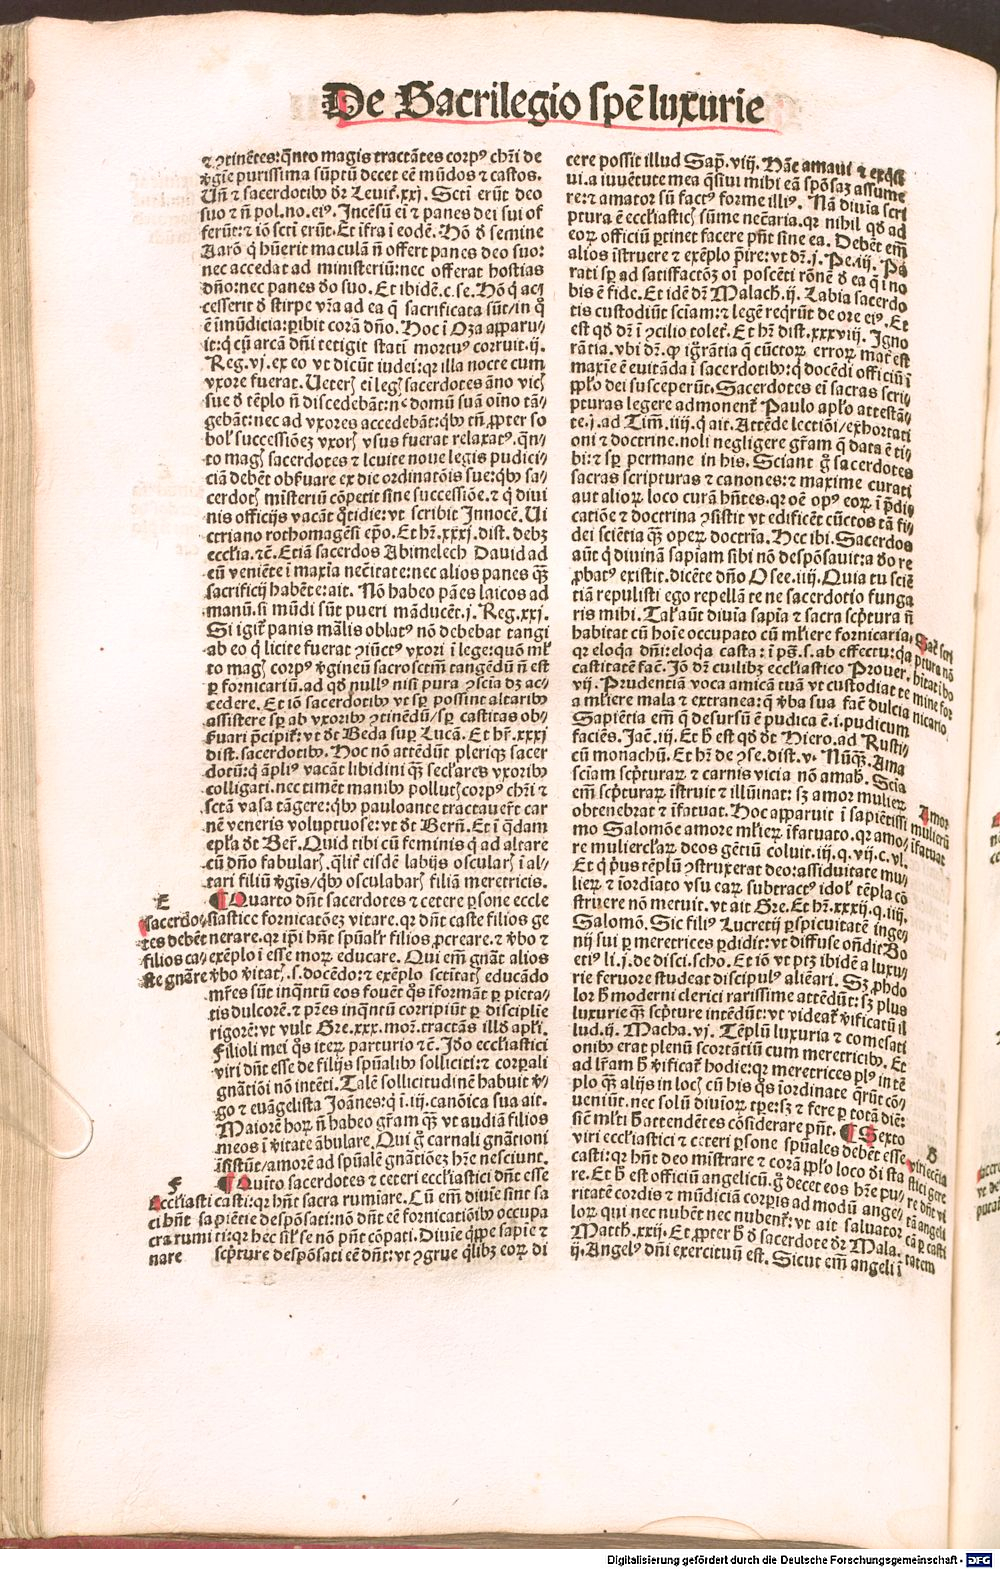 De Sacrilegio spe͞ luxurie
⁊ ꝯtine͞tes: q͞nto magis tracta͞tes corpꝰ chr͞i de
v͞gi͞e purissima su͞ptu͞ decet ee͞ mu͞dos ⁊ castos.
Un͞ ⁊ sacerdotibꝰ dr͞ Leuit͞.xxj. Sct͞i eru͞t deo
suo ⁊ n͞ pol.no.eiꝰ. Ince͞su͞ ei͞ ⁊ panes dei sui of
feru͞t: ⁊ io͞ sct͞i eru͞t. Et i͞fra i͞ eode͞. Ho͞ d͞ semine
Aaro͞ q͞ hu͞erit macula͞ n͞ offert panes deo suo:
nec accedat ad ministeriu͞: nec offerat hostias
dn͞o: nec panes do͞ suo. Et ibide͞.c.se. Ho͞ q͞ ac/
cesserit d͞ stirpe vr͞a ad ea q͞ sacrificata su͞t/in q͞
e͞ i͞mu͞dicia: ꝑibit cora͞ dn͞o. Hoc i͞ Oza apparu/
it: q͞ cu͞ arca͞ dn͞i tetigit stati͞ mortuꝰ corruit.ij.
Reg.vj. ex eo vt dicu͞t iudei: qꝛ illa nocte cum
vxore fuerat. Ueter͞ ei͞ leg͞ sacerdotes a͞no vich͞
sue d͞ te͞plo n͞ discedeba͞t: n͞c domu͞ sua͞ oi͞no ta͞/
geba͞t: nec ad vxores accedeba͞t: qͥbꝰ tn͞ ꝓpter so
bol͞ successio͞ez vxor͞ vsus fuerat relaxatꝰ. q͞n/
to mag͞ sacerdotes ⁊ leuite noue legis pudici/
cia͞ debe͞t obs͞uare ex die ordinato͞is sue: qͥbꝰ sa/
cerdot͞ misteriu͞ co͞petit sine successio͞e. ⁊ q͞ diui
nis officijs vaca͞t q͞tidie: vt scribit Innoce͞. Ui
ctriano rothomage͞si ep͞o. Et hr͞.xxxj. dist. debꝫ
eccl͞ia. ⁊c͞. Etia͞ sacerdos Abimelech Dauid ad
eu͞ venie͞te i͞ maxi͞a nec͞itate: nec alios panes q͞ꝫ
sacrificij habe͞te: ait. No͞ habeo pa͞es laicos ad
manu͞. si mu͞di su͞t pueri ma͞duce͞t.j. Reg.xxj.
Si igit͞ panis ma͞lis oblatꝰ no͞ debebat tangi
ab eo q͞ licite fuerat ꝯiu͞ctꝰ vxori i͞ lege: quo͞ ml͞
to mag͞ corpꝰ v͞gineu͞ sacrosctm͞ tange͞du͞ n͞ est
ꝑ fornicariu͞. ad qd͞ nullꝰ nisi pura ꝯscia dꝫ ac/
cedere. Et io͞ sacerdotibꝰ vt sp͞ possint altaribꝰ
assistere sp͞ ab vxoribꝰ ꝯtine͞du͞/sp͞ castitas ob/
s͞uari p͞cipit͞: vt dt͞ Beda sup͞ Luca͞. Et hr͞.xxxj
dist. sacerdotibꝰ. Hoc no͞ atte͞du͞t pleriqꝫ sacer
dotu͞: q͞ a͞pliꝰ vaca͞t libidini q͞ꝫ secl͞ares vxoribꝰ
colligati. nec time͞t manibꝰ pollut͞ corpꝰ chr͞i ⁊
sct͞a vasa ta͞gere: qͥbꝰ pauloante tractauer͞t car
ne͞ veneris voluptuose: vt dt͞ Bern͞. Et i͞ q͞dam
epl͞a dt͞ Ber͞. Quid tibi cu͞ feminis q͞ ad altare
cu͞ dn͞o fabular͞. qlit͞ eisde͞ labijs oscular͞ i͞ al/
tari filiu͞ v͞gis/qͥbꝰ osculabar͞ filia͞ meretricis.
¶ Quarto dn͞t sacerdotes ⁊ cetere ꝑsone eccle
siastice fornicato͞ez vitare. qꝛ dn͞t caste filios ge
nerare. qꝛ ip͞i hn͞t sp͞ualr͞ filios ꝓcreare. ⁊ v͞bo ⁊
exe͞plo i͞ esse moꝝ educare. Qui em͞ gna͞t alios
v͞bo v͞itat͞ .s. doce͞do: ⁊ exe͞plo sct͞itat͞ educa͞do
mr͞es su͞t inqn͞tu͞ eos foue͞t qͦs i͞forma͞t ꝑ pieta/
tis dulcore͞. ⁊ pr͞es inqn͞tu͞ corripiu͞t ꝑ disciplie
rigore͞: vt vult Gre.xxx. mor͞. tracta͞s illd͞ apl͞i.
Filioli mei qͦs iteꝝ parturio ⁊c͞. Jo͞o eccl͞iastici
viri dn͞t esse de filijs sp͞ualibꝰ solliciti: ⁊ corꝑali
gna͞tio͞i no͞ inte͞ti. Tale͞ sollicitudine͞ habuit v͞/
go ⁊ eua͞gelista Joa͞nes: q͞ i͞.iij. cano͞ica sua ait.
Maiore͞ hoꝝ n͞ habeo gr͞am q͞ꝫ vt audia͞ filios
meos i͞ v͞itate a͞bulare. Qui g͞ carnali gna͞tioni
i͞sistu͞t/amore͞ ad sp͞uale͞ gna͞tio͞ez hr͞e nesciunt.
¶ Qui͞to sacerdotes ⁊ ceteri eccl͞iastici dn͞t esse
casti: qꝛ hn͞t sacra rumiare. Cu͞ em͞ diui͞e sint sa
pie͞tie despo͞sati: no͞ dn͞t ee͞ fornicatio͞ibꝰ occupa
ti: qꝛ hec sil͞ se no͞ pn͞t co͞pati. Diui͞e q͞ppe sapie͞ ⁊
scp͞ture despo͞sati ee͞ dn͞t: vt ꝯgrue qlibꝫ eoꝝ di
E
sacerdo/
tes debe͞t
filios ca/
ste gna͞re
F
Eccl͞iasti
ci hn͞t sa
cra rumi
nare
cere possit illud Sap͞.viij. Ha͞c amaui ⁊ exq͞si
ui.a iuue͞tute mea q͞siui mihi ea͞ spo͞saꝫ assume
re: ⁊ amator su͞ factꝰ forme illiꝰ. Na͞ diui͞a scri
ptura e͞ eccl͞iastic͞ su͞me nec͞aria. qꝛ nihil qd͞ ad
eoꝝ officiu͞ ꝑtinet facere pn͞t sine ea. Debe͞t em͞
alios i͞struere ⁊ exe͞plo p͞ire: vt dr͞.j. Pe.iij. Pa͞
rati sp͞ ad satisfacto͞ꝫ oi͞ posce͞ti ro͞ne͞ d͞ ea q͞ i͞ no
bis e͞ fide. Et ide͞ dr͞ Malach͞.ij. Labia sacerdo
tis custodiu͞t scia͞m: ⁊ lege͞ reqr͞ut de ore eiꝰ. Et
est qd͞ dr͞ i͞ ꝯcilio tolet͞. Et hr͞ dist.xxxviij. Igno
ra͞tia. vbi dr͞. ꝙ ig͞ra͞tia q͞ cu͞ctoꝝ erroꝝ mat͞ est
maxi͞e e͞ euita͞da i͞ sacerdotibꝰ: q͞ doce͞di officiu͞ i͞
pp͞lo dei susceperu͞t. Sacerdotes ei͞ sacras scri/
pturas legere admonent͞ Paulo apl͞o attesta͞/
te.j. ad Tim͞.iiij. q͞ ait. Atte͞de lectio͞i/exhortati
oni ⁊ doctrine. noli negligere gr͞am q͞ data e͞ ti/
bi: ⁊ sp͞ permane in his. Sciant g͞ sacerdotes
sacras scripturas ⁊ canones: ⁊ maxime curati
aut alioꝝ loco cura͞ hn͞tes. qꝛ oe͞ opꝰ eoꝝ i͞ p͞di/
catio͞e ⁊ doctrina ꝯsistit vt edifice͞t cu͞ctos ta͞ fi/
dei scie͞tia q͞ꝫ opeꝝ doctri͞a. Hec ibi. Sacerdos
au͞t q͞ diuina͞ sapi͞am sibi no͞ despo͞sauit: a do͞ re
ꝓbatꝰ existit. dice͞te dn͞o Osee.iiij. Quia tu scie͞
tia͞ repulisti ego repella͞ te ne sacerdotio funga
ris mihi. Tal͞ au͞t diui͞a sapi͞a ⁊ sacra scp͞tura n͞
habitat cu͞ hoi͞e occupato cu͞ ml͞iere fornicaria.
qꝛ eloq͞a dn͞i: eloq͞a casta: i͞ ps͞.s.ab effectu: qꝛ
castitate͞ fac͞. Jo͞ dr͞ cuilibꝫ eccl͞iastico Prouer.
vij. Prudentia͞ voca amica͞ tua͞ vt custodiat te
a ml͞iere mala ⁊ extranea: q͞ v͞ba sua fac͞ dulcia
Sapie͞tia em͞ q͞ desursu͞ e͞ pudica e͞.i.pudicum
facie͞s. Jac͞.iij. Et h͞ est qd͞ dt͞ Hiero.ad Rusti/
cu͞ monachu͞. Et hr͞ de ꝯse.dist.v. Nu͞qꝫ. Ama
scia͞m scp͞turaꝝ ⁊ carnis vicia no͞ amab͞. Scia
em͞ scp͞turaꝝ i͞struit ⁊ illu͞inat: sꝫ amor mulieꝝ
obtenebrat ⁊ i͞fatuat. Hoc apparuit i͞ sapie͞tissi
mo Salomo͞e amore ml͞ieꝝ i͞fatuato. qꝛ amo/
re muliercl͞aꝝ deos ge͞tiu͞ coluit.iij.q.vij.c.vl.
Et q͞ pͥus te͞plu͞ ꝯstruxerat deo: assiduitate mu/
lieꝝ ⁊ iordiato vsu eaꝝ subtractꝰ idol͞ te͞pla co͞
struere no͞ metuit. vt ait Gre. Et hr͞.xxxij.q.iiij.
Salomo͞. Sic filiꝰ Lucretij ꝑspicuitate͞ inge/
nij sui ꝑ meretrices ꝑdidit: vt diffuse on͞dit Bo
etiꝰ li.j.de disci.scho. Et io͞ vt ptꝫ ibide͞ a luxu/
rie feruore studeat discipulꝰ alie͞ari. Sꝫ ꝓhdo
lor h͞ moderni clerici rarissime atte͞du͞t: sꝫ plus
luxurie q͞ꝫ scp͞ture inte͞du͞t: vt videat͞ v͞ificatu͞ il
lud.ij. Macha.vj. Te͞plu͞ luxuria ⁊ comesati
onibꝰ erat plenu͞ scorta͞tiu͞ cum meretricibꝰ. Et
ad lr͞am h͞ v͞ificat͞ hodie: qꝛ meretrices plꝰ in te͞
plo q͞ꝫ alijs in loc͞ cu͞ his qͦs i͞ordinate q͞ru͞t co͞/
ueniu͞t. nec solu͞ diuioꝝ tp͞e: sꝫ ⁊ fere ꝑ tota͞ die͞:
sic͞ ml͞ti h͞ attende͞tes co͞siderare pn͞t. ¶ Sexto
viri eccl͞iastici ⁊ ceteri ꝑsone sp͞uales debe͞t esse
casti: qꝛ hn͞t deo mi͞strare ⁊ cora͞ pp͞lo loco di͞ sta
re. Et h͞ est officiu͞ angelicu͞. g͞ decet eos hr͞e pu/
ritate͞ cordis ⁊ mu͞dicia͞ corꝑis ad modu͞ ange/
loꝝ qui nec nube͞t nec nubent͞: vt ait saluator
Matth͞.xxij. Et ꝓpter h͞ d͞ sacerdote dr͞ Mala.
ij. Angelꝰ dn͞i exercituu͞ est. Sicut em͞ angeli i͞
Sac͞ scri
ptura no͞
habitat i͞ ho
mine for
nicario.
Amor
mulieru͞
i͞fatuat
G
viri eccl͞ia
stici gere
re dn͞t vi
ta͞ angeli
ca͞ ꝑ casti
tatem
Digitalisierung gefördert durch die Deutsche Forschungsgemeinschaft - DFG